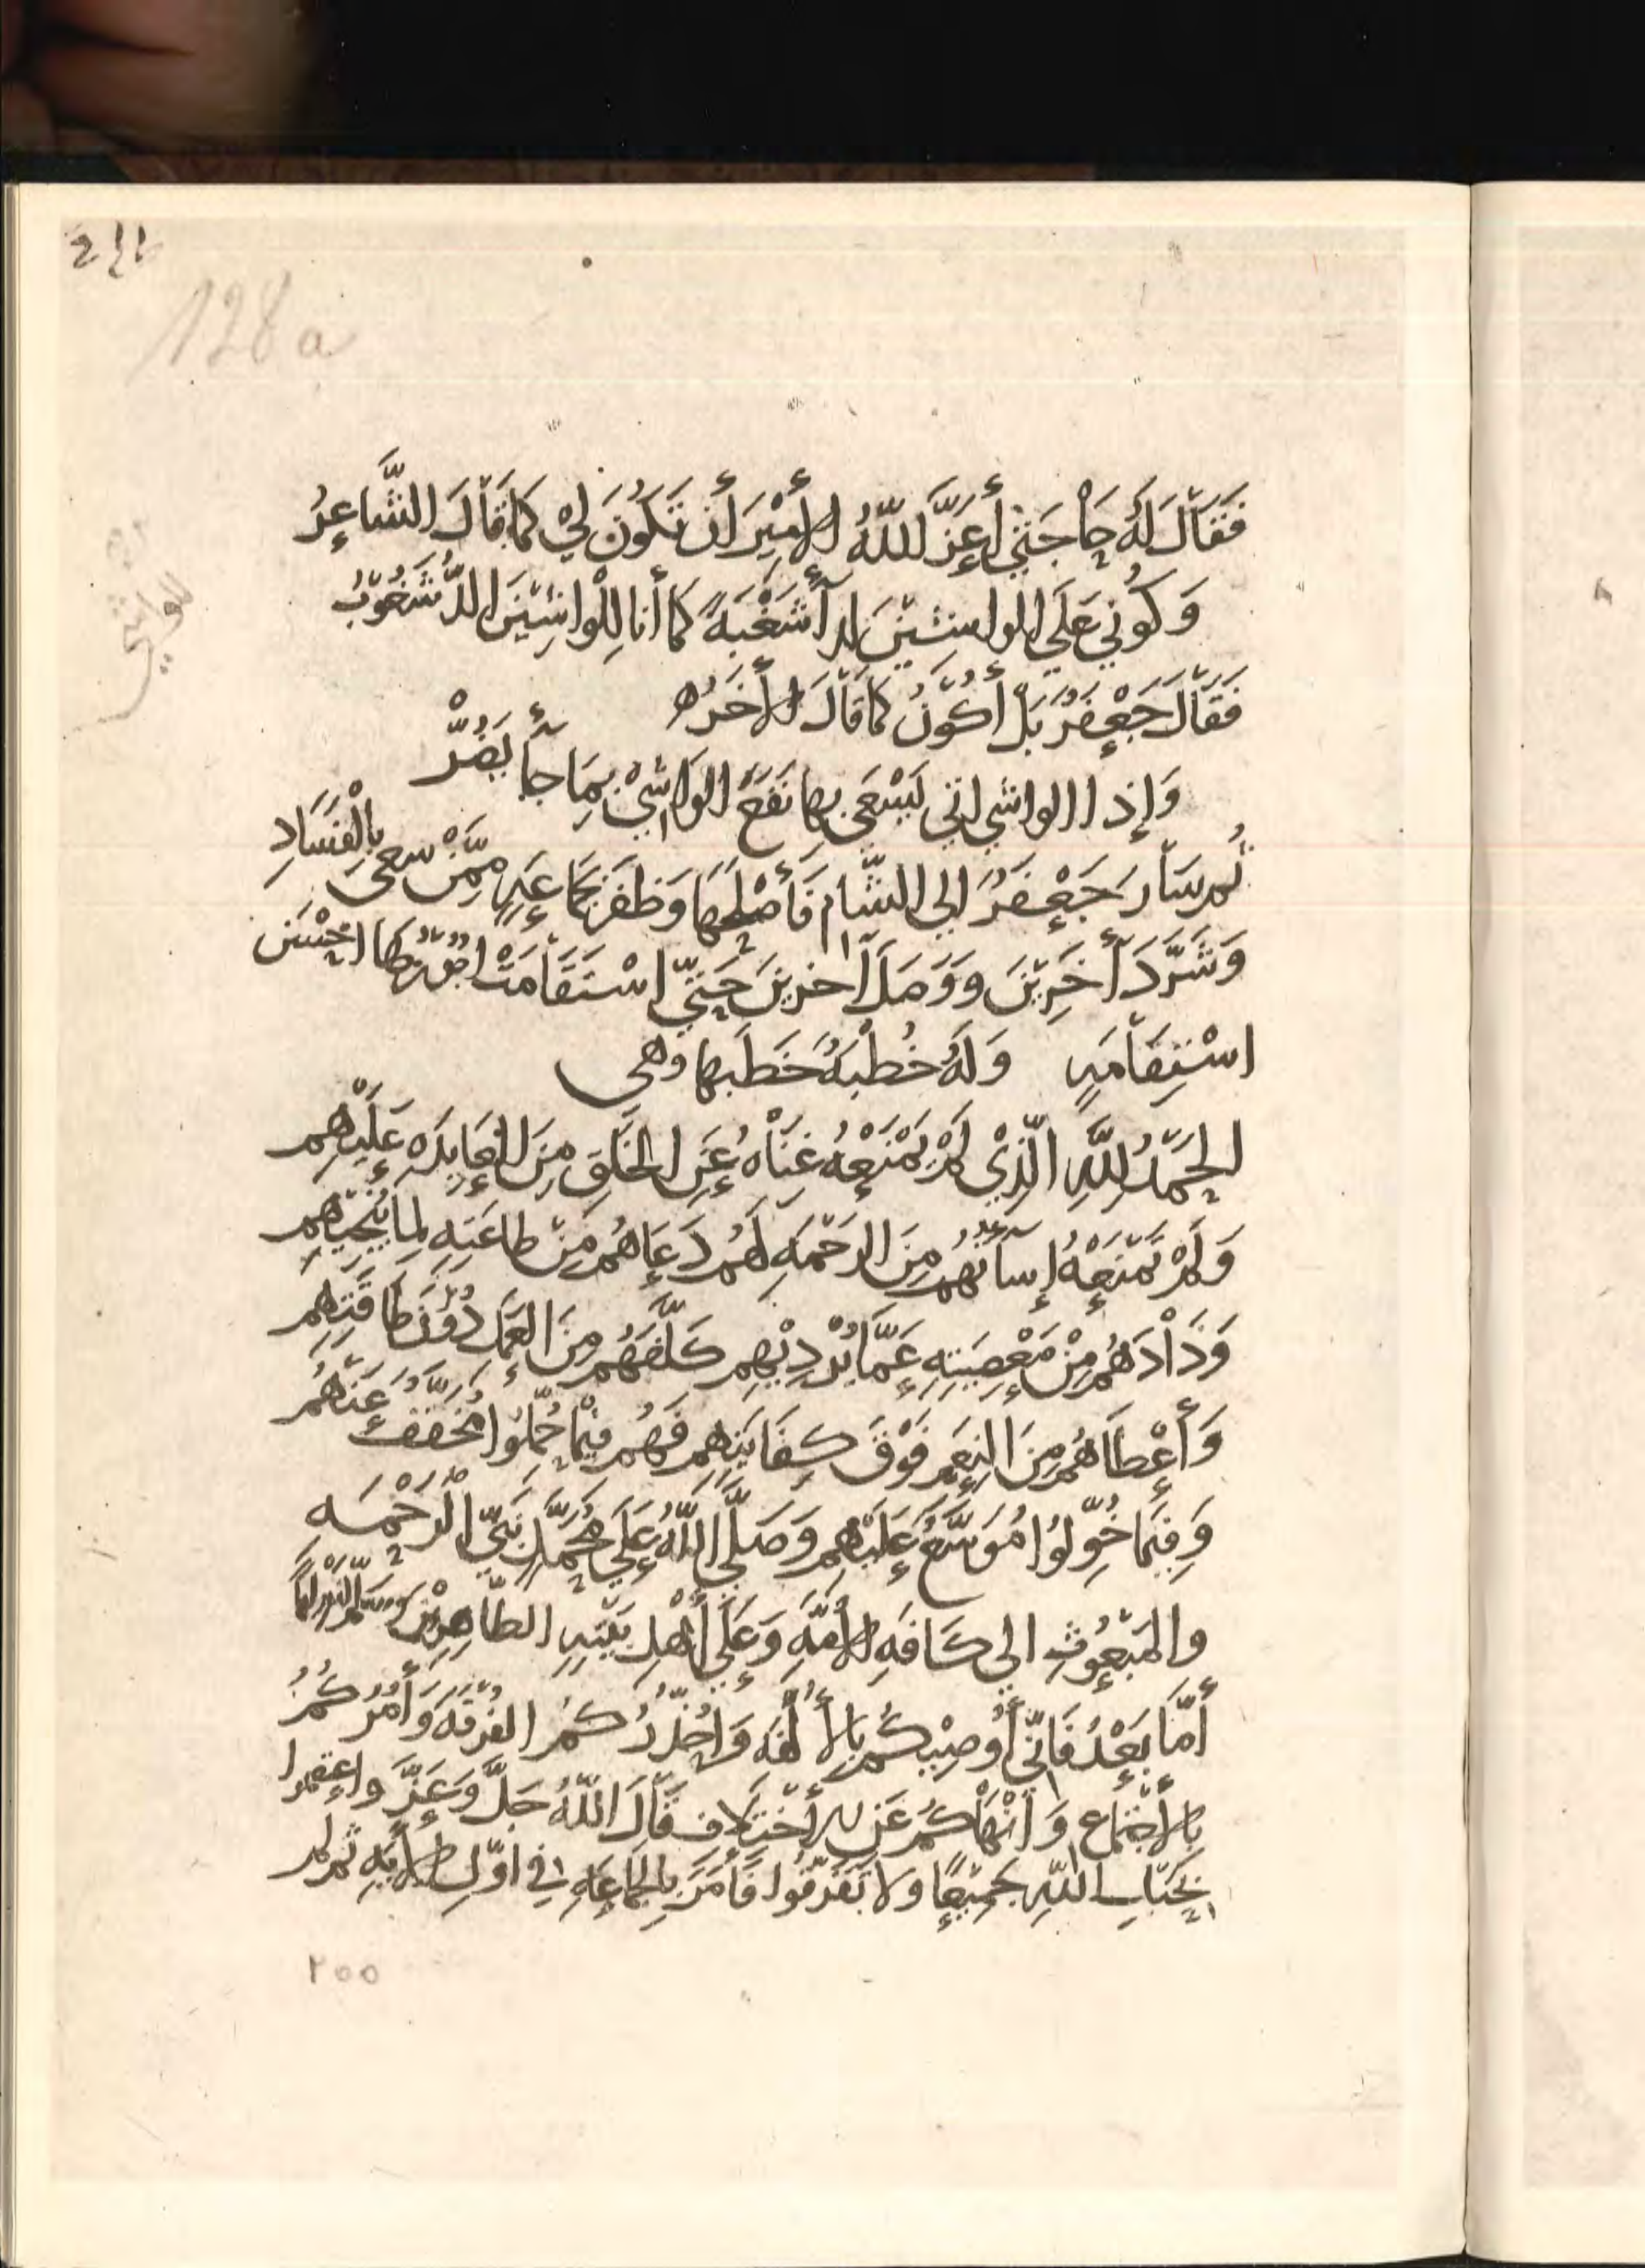 128 a
فَقَالَ لَهُ حَاجَتِي أَعَزَّ اللّهُ الأَمِيْرَ أَن تَكُونَ لِيْ كَمَا قَالَ الشَّاعِرُ
وَكُونِي عَلَي الواشِيْنَ لدآ شَغْبَةً كَمَا أَنا لِلْواشِيْنَ الدُّ شَغُوْبُ
فَقَالَ جَعْفَرُ بَلْ أَكُوْنُ كَمَا قَالَ الأَخَرُ ه
وَإِذا الواشي اتي يَسْعَي بِهَا نَفَعَ الوَاشِيْ بِمَا جآَ يَضُرّْ
ثُم سَارَ جَعْفَرُ الي الشَّام فَأَصْلَحَهَا وَظَفَرَ بجَمَاعَةٍ مِمَّنْ سعي بِالْفَسَادِ
وَشَرَّدَ آخَرِيْنَ وَوَصَلَ آخرينَ حَتّي اسْتَقَامَتْ احسَن
اسْتِقَامَةٍ وَلَهُ خُطْبَةُ خَطَبها وهي
الحَمْدُ لِلّهِ الّذِيْ لَمْ يَمْنَعْهُ غِنَاهُ عَنِ الخَلقِ مِنَ عَلَيْهِم
وَلَمْ تَمْنَعْهُ إِسآتُهُم مِنَ الرَحْمَةِ لَهُم دَعَاهُم مِنْ طاعَتِهِ لِمَا يُنْجِيْهم
وَذَادَهُم مِنْ مَعْصِيَتِهِ عَمَّا يُرْدِيْهِم كَلَّفَهُم مِنَ العَمَل دُوْنَ طَاقَتِهِم
وَأَعْطَاهُم مِنَ النِعَم فَوْقَ كِفَايَتِهِم فَهُم فِيْمَا حُمّلُوا مُخَفَّفُ عَنْهُم
وَفِيْمَا خُوّلُوا مُوَسَّعُ عَلَيْهِم وَصَلَّي اللّهُ عَلَي مُحَمَّدٍ نَبِيّ الرَحْمَه
والمَبْعُوْثِ الي كَافَةِ الأُمَّةِ وَعَلَي أَهْلِ بَيْتِهِ الطّاهِرِيْنَ
أَمَّا بَعْدُ فَانِّي أُوصِيْكُم بِالأُلْفَه وَاُحَذّرُكُم الفُرْقَةَ وَأَمُرُكُمُ
بِالأَجْتِمَاعِ وَأَنْهَاكُم عَنِ الأَخْتِلَافِ قَالَ اللّهُ جَلَّ وَعَزَّ واعتصموا
بِحَبْلِ اللّهِ جَمِيْعًا ولا تَفَرّقُوا فَأَمَرَ بِالجَمَاعَةِ في اوّلِ الأَيَةِ ثم لم
٢٥٥